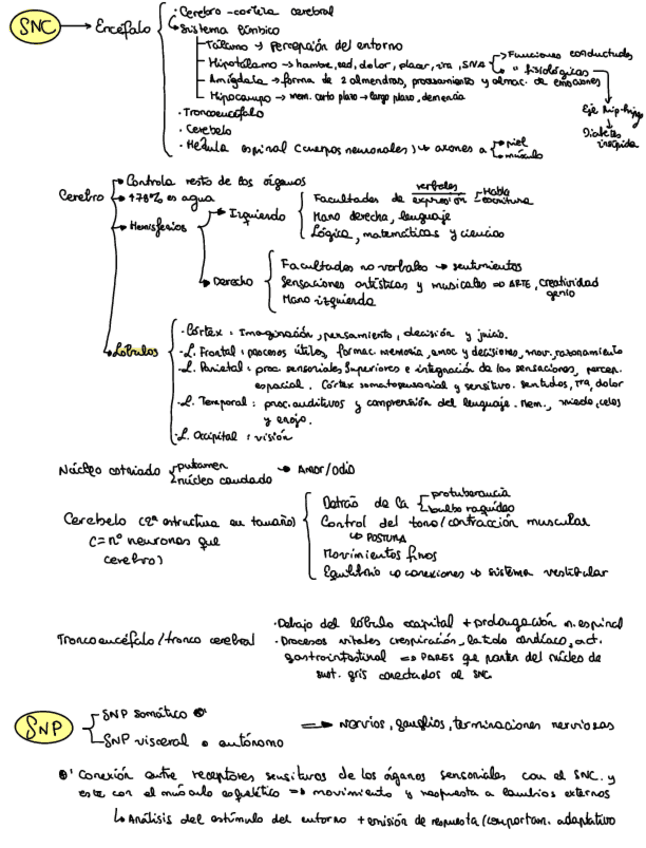 SNC → Encéfalo
· Cerebro - corteza cerebral
· Sistema límbico
Tálamo → Percepción del entorno
Hipotálamo → hambre, sed, dolor, placer, ira, SNA
Funciones conductuales
" fisiológicas
Eje hip-hip
Diabetes insípida
Amígdala → forma de 2 almendras, procesamiento y almac. de emociones
Hipocampo → mem. corto plazo → largo plazo, demencia
· Troncoencéfalo
· Cerebelo
· Médula espinal (cuerpos neuronales) ↳ axones a
piel
músculo
Cerebro
Controla resto de los órganos
+78% es agua
Hemisferios
Izquierdo
Facultades de expresión verbales
Habla
escritura
Mano derecha, lenguaje
Lógica, matemáticas y ciencias
Derecho
Facultades no verbales → sentimientos
Sensaciones artísticas y musicales ⇒ ARTE, creatividad
genio
Mano izquierda
Lóbulos
· Córtex: Imaginación, pensamiento, decisión y juicio.
· L. Frontal: procesos útiles, formac. memoria, emoc y decisiones, mov. razonamiento
· L. Parietal: proc sensoriales superiores e integración de las sensaciones, percen.
espacial. Córtex somatosensorial y sensitivo. sentidos, ira, dolor
· L. Temporal: proc. auditivos y comprensión del lenguaje. Mem., miedo, celos
y enojo.
· L. Occipital: visión
Núcleo estriado
putamen
núcleo caudado
→ Amor/odio
Cerebelo (2ª estructura en tamaño)
(=nº neuronas que
cerebro)
Detrás de la
protuberancia
bulbo raquídeo
Control del tono/contracción muscular
↳ POSTURA
Movimientos finos
Equilibrio ↳ conexiones ↳ sistema vestibular
Troncoencéfalo/tronco cerebral
· Debajo del lóbulo occipital + prolongación m. espinal
· Procesos vitales (respiración, latido cardíaco, act.
gastrointestinal ⇒ PARES que parten del núcleo de
sust. gris conectados al SNC
SNP
SNP somático
SNP visceral o autónomo
⇒ Nervios, ganglios, terminaciones nerviosas
Conexión entre receptores sensitivos de los órganos sensoriales con el SNC. y
este con el músculo esquelético ⇒ movimiento y respuesta a cambios externos
↳ Análisis del estímulo del entorno + emisión de respuesta (comportam. adaptativo